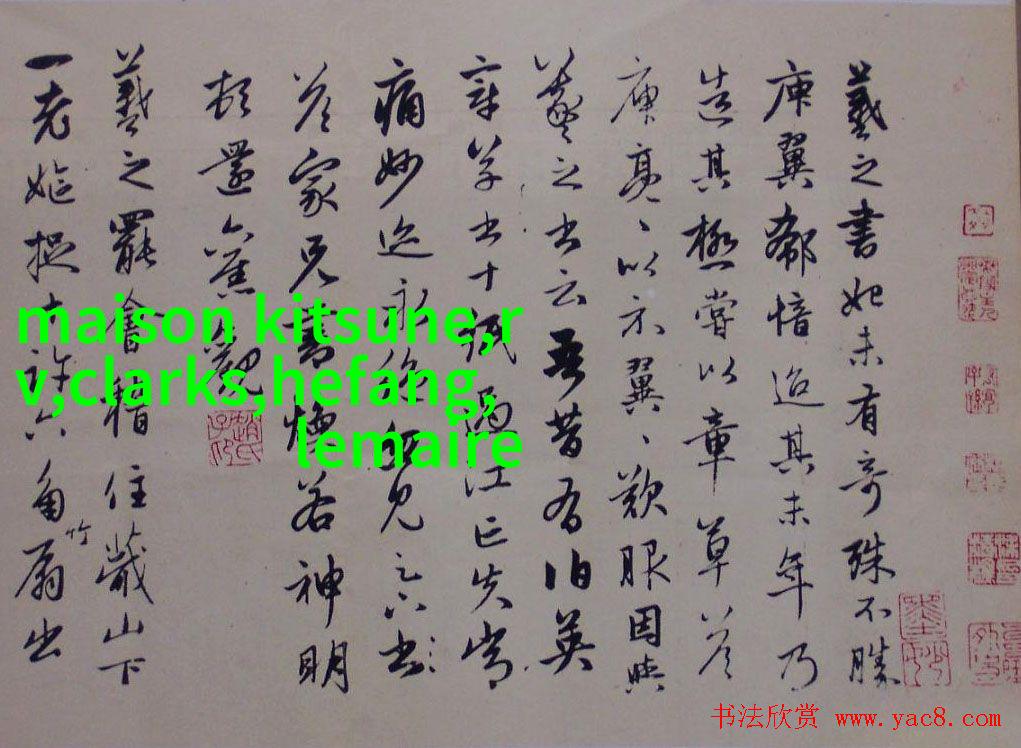 羲之書始未有奇殊不勝
庾翼郗愔迨其末年乃
造其極嘗以章草答
庾亮、以示翼、歎服因與
羲之書云吾昔有伯英
章草書十紙過江亡失常
痛妙迹永絕忽見足下書
答家兄書煥若神明
頓還舊觀
趙氏子昂
羲之罷會稽住蕺山下
一老嫗捉十許六角竹扇出
maison kitsune,r
v,clarks,hefang,
lemaire
书法欣赏 www.yac8.com